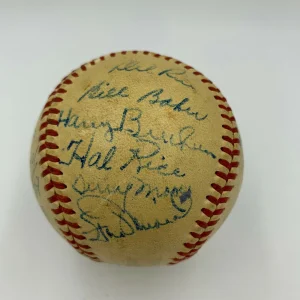 Del Rice
Bill Baker
Harry Brecheen
Hal Rice
Terry Moore
Stan Musial